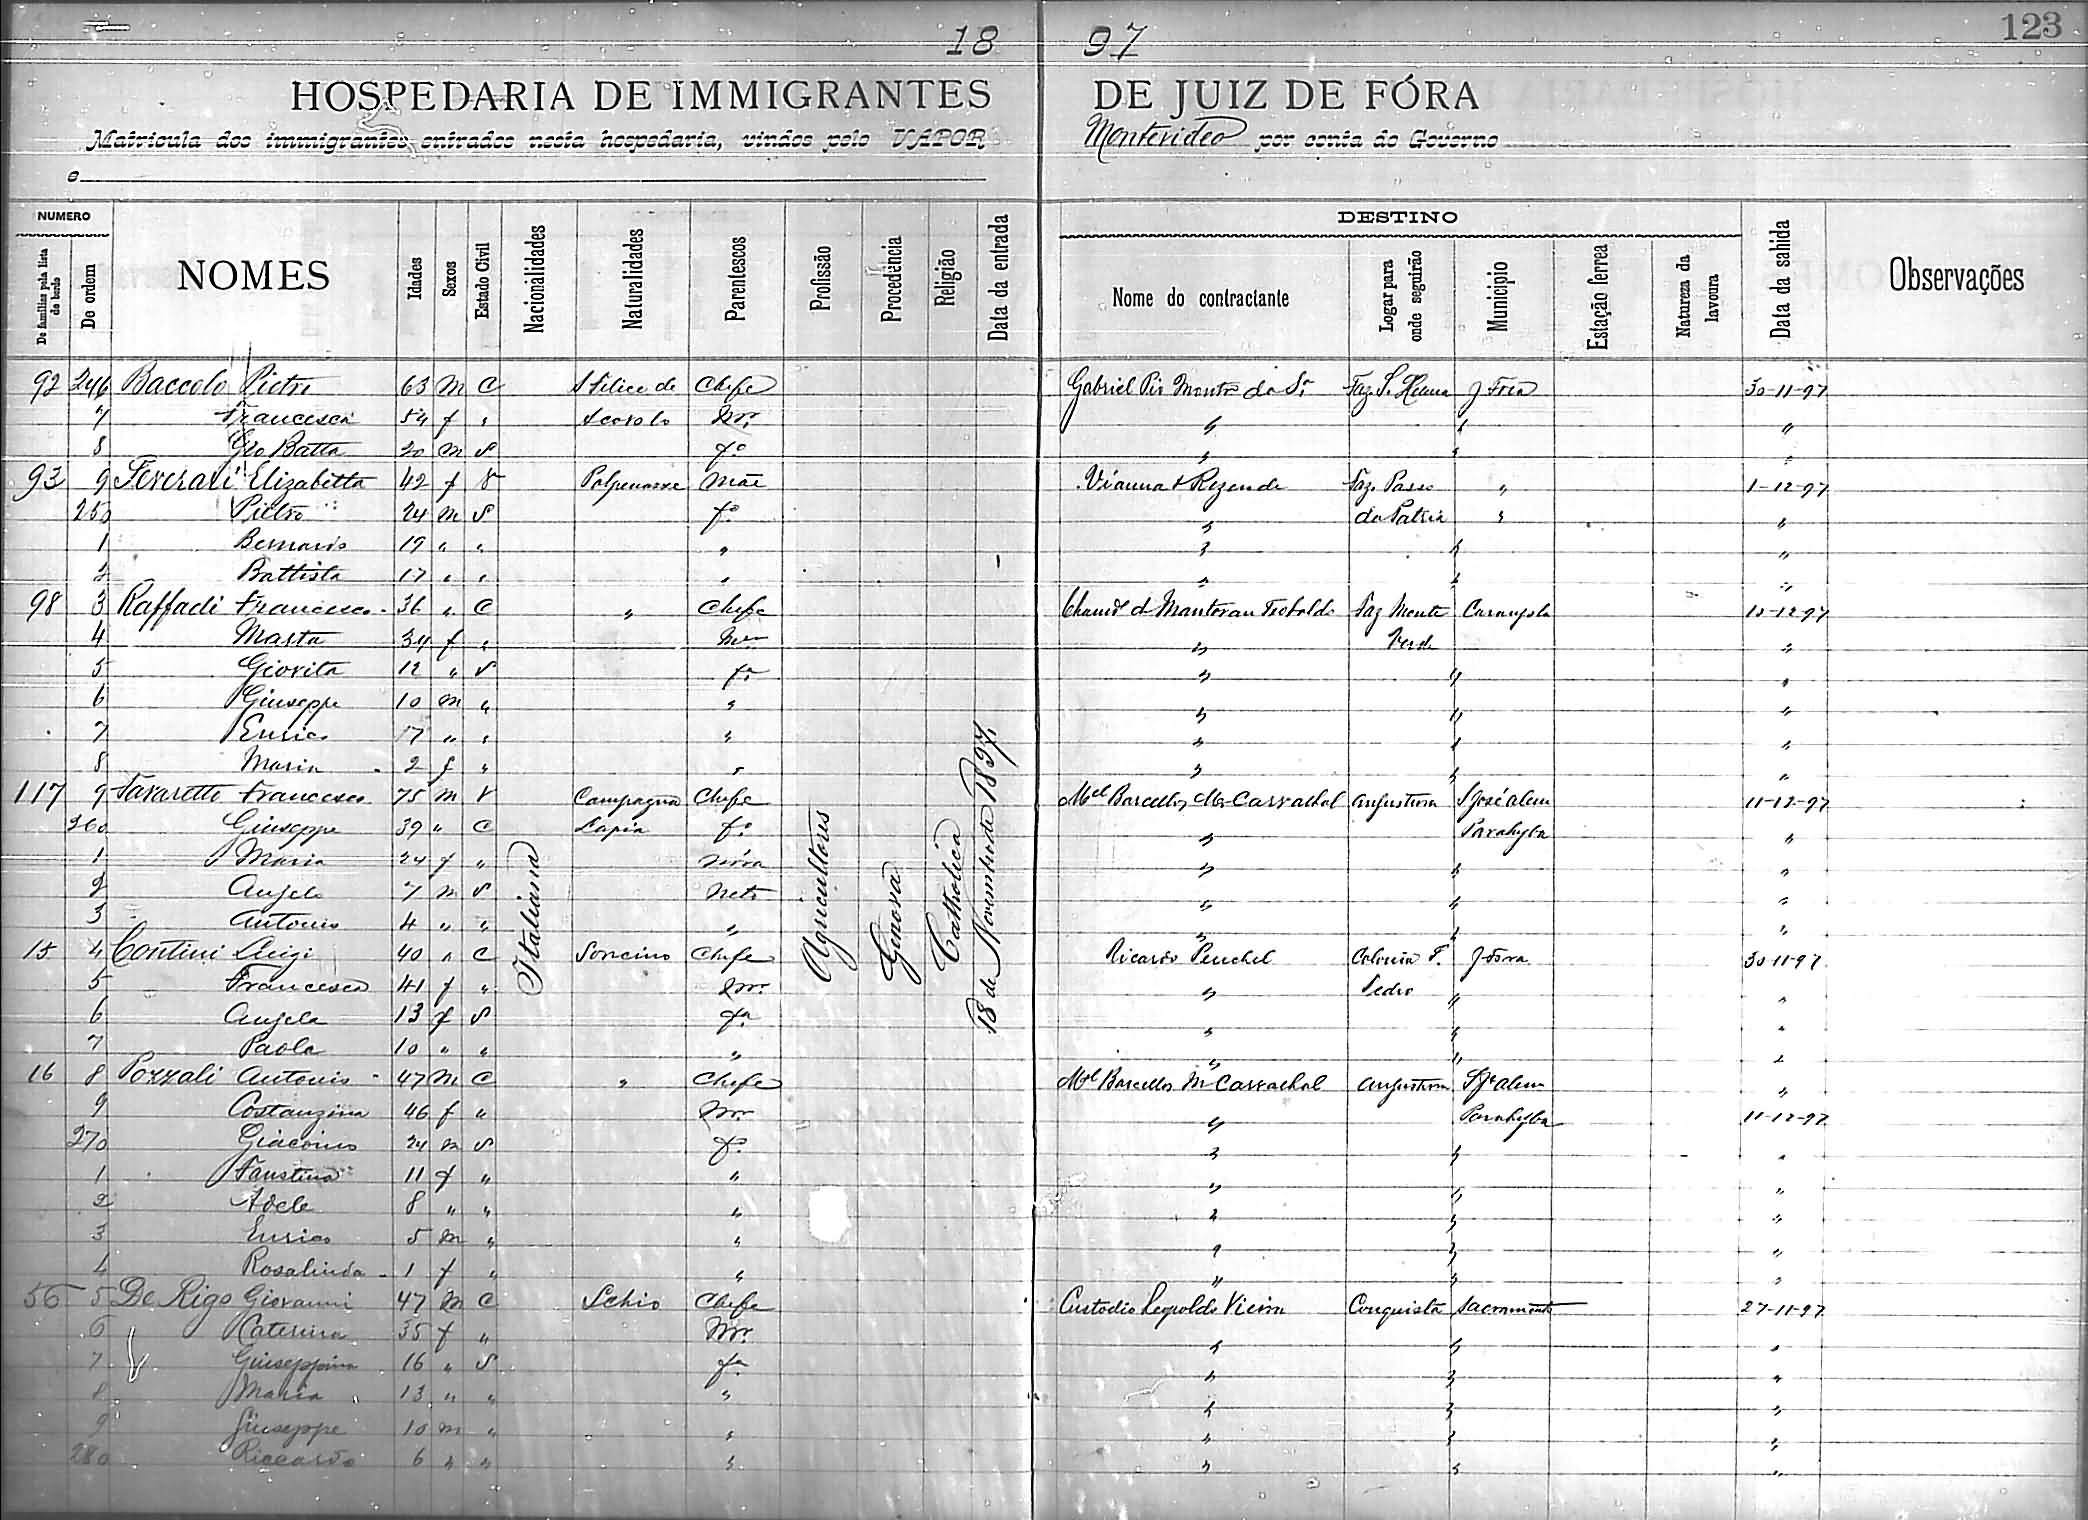 123
18 97
HOSPEDARIA DE IMMIGRANTES DE JUIZ DE FÓRA
Matricula dos immigrantes entrados nesta hospedaria, vindos pelo VAPOR Montevideo por conta do Governo
e
NUMERO DESTINO
De familias pela lista de bordo De ordem NOMES Idades Sexos Estado Civil Nacionalidades Naturalidades Parentescos Profissão Procedência Religião Data da entrada Nome do contractante Logar para onde seguirão Municipio Estação ferrea Natureza da lavoura Data da sahida Observações
92 246 Baccolo Pietro 63 M C S Felice de Chefe Gabriel Faz. J Fora 30-11-97
7 Francesca 54 f " Mer " " "
8 Gio Batta 20 M S fo " " "
93 9 Elizabetta 42 f V Mãe Vianna & Rezende Faz. Passo " 1-12-97
250 Pietro 24 M S fo " da Patria " "
1 Bernardo 19 " " " " " "
2 Battista 17 " " " " " "
98 3 Francesco 36 " C " Chefe Faz Monte Carangola 10-12-97
4 Marta 34 f " Mer " Verde "
5 Giovita 12 " S fa " " "
6 Giuseppe 10 M " " " " "
7 Enrico 7 " " " " " "
8 Maria 2 f " " " " "
117 9 Favaretto Francesco 75 M V Campagna Chefe Mel Barcellos M Carvalhal Angustura S José alem 11-12-97
260 Giuseppe 39 " C Lapia fo " Parahyba "
1 Maria 24 f " Nóra " " "
2 Angelo 7 M S Neto " " "
3 Antonio 4 " " " " " "
Italiana Agricultores Genova Catholica 18 de Novembro de 1897
15 4 Contini Luigi 40 " C Soncino Chefe Ricardo Penchel Colonia S. J Fora 30-11-97
5 Francesca 41 f " Mer " Pedro " "
6 Angela 13 f S fa " " "
7 Paola 10 " " " " " "
16 8 Pozzali Antonio 47 M C " Chefe Mel Barcellos M Carvalhal Angustura S Je alem "
9 Costanzina 46 f " Mer " Parahyba 11-12-97
270 Giacomo 24 M S fo " " "
1 Faustina 11 f " " " " "
2 Adele 8 " " " " " "
3 Enrico 5 M " " " " "
4 Rosalinda 1 f " " " " "
56 5 De Rigo Giovanni 47 M C Schio Chefe Custodio Leopoldo Vieira Conquista Sacramento 27-11-97
6 Caterina 35 f " Mer " " "
7 Giuseppina 16 " S fa " " "
8 Maria 13 " " " " " "
9 Giuseppe 10 M " " " " "
280 Riccardo 6 " " " " " "